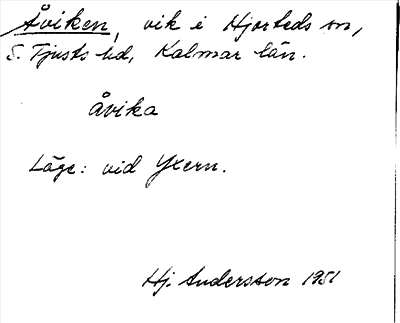 Åviken, vik i Hjorteds sn,
S. Tjusts hd, Kalmar län.
åvika
Läge: vid Yxern.
Hj. Andersson 1951